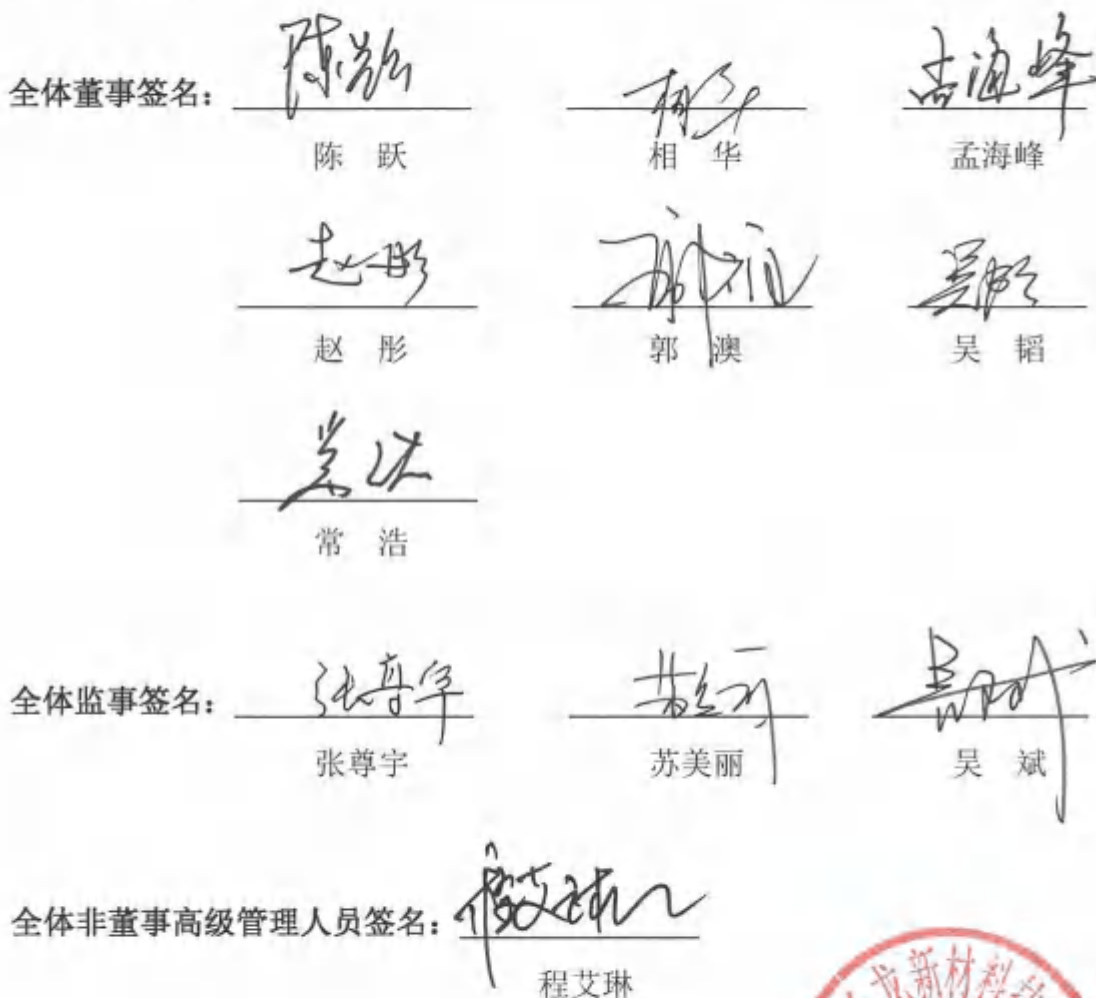 全体董事签名:
陈 跃 相 华 孟海峰
赵 彤 郭 澳 吴 韬
常 浩
全体监事签名:
张尊宇 苏美丽 吴 斌
全体非董事高级管理人员签名:
程艾琳
龙新材料科